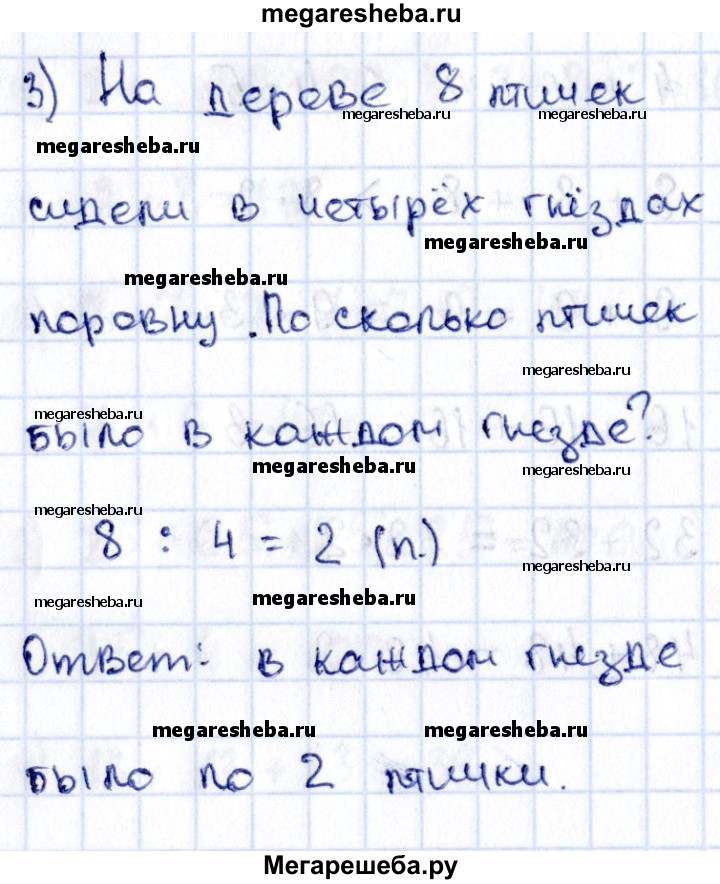 megaresheba.ru
3) На дереве 8 птичек
megaresheba.ru megaresheba.ru
megaresheba.ru
сидели в четырёх гнёздах
megaresheba.ru
megaresheba.ru
поровну. По сколько птичек
megaresheba.ru
megaresheba.ru
было в каждом гнезде?
megaresheba.ru megaresheba.ru
megaresheba.ru
8 : 4 = 2 (п.)
megaresheba.ru
megaresheba.ru megaresheba.ru
Ответ: в каждом гнезде
megaresheba.ru megaresheba.ru
было по 2 птички.
Мегарешеба.ру